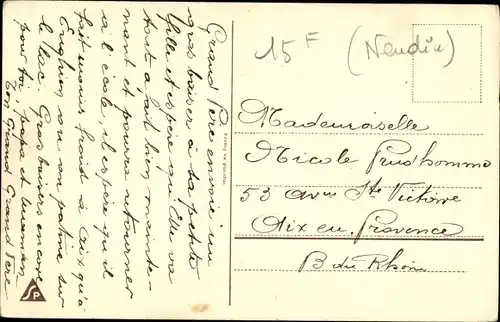 Grand Père envoie un
gros baiser à sa petite
fille et espère qu'Elle va
tout à fait bien mainte-
nant et pourra retourner
à l'école, il espère qu'il
fait moins froid à Aix qu'à
Enghien où on patine sur
le lac. Gros baisers encore
pour toi, papa et maman
Ton Grand Grand Père
15F (
Mademoiselle
Nicole Prudhomme
53 Ave Ste Victoire
Aix en Provence
B du Rhône
SP